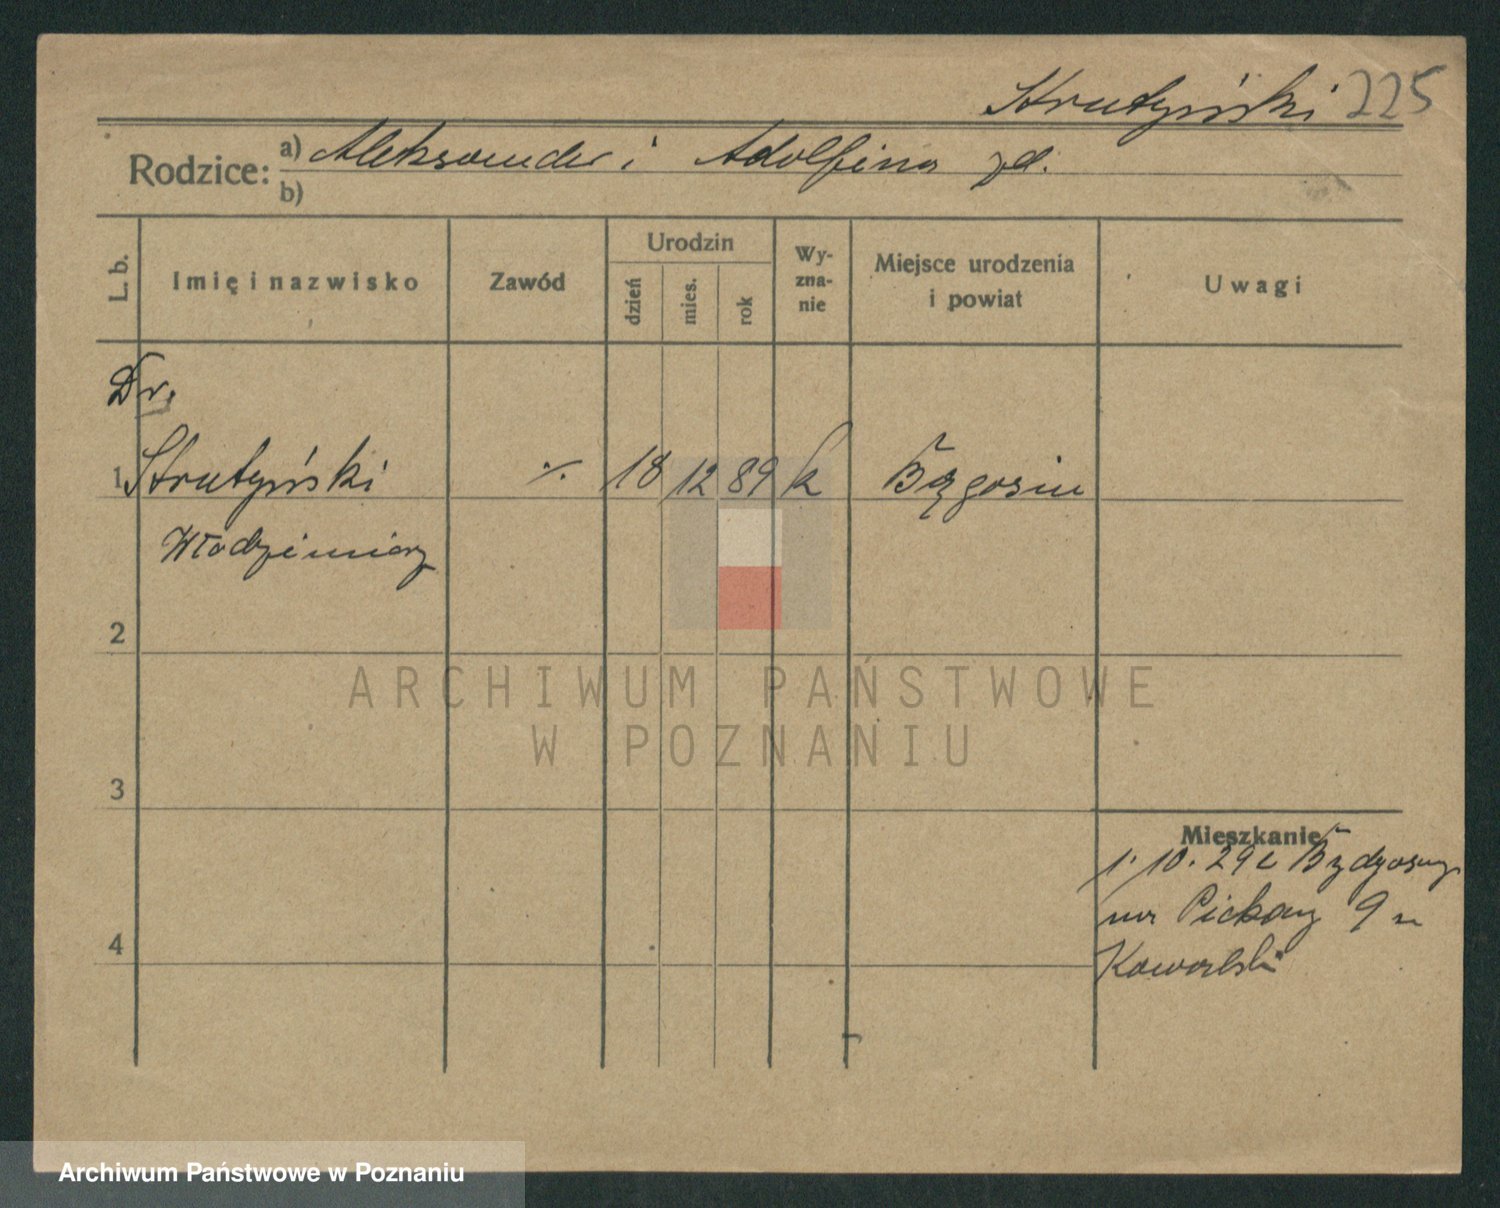 Strutyński 225
Rodzice: a) Aleksander i Adolfina zd.
b)
L. b.
Imię i nazwisko
Zawód
Urodzin
dzień
mies.
rok
Wy-
zna-
nie
Miejsce urodzenia
i powiat
Uwagi
Dr.
1 Strutyński ·/. 18 12 89 k
Włodzimierz
2
ARCHIWUM PAŃSTWOWE
W POZNANIU
3
Mieszkanie
1. 10. 29 z Bydgoszcz
Piekary 9
4
Kowalski
Archiwum Państwowe w Poznaniu